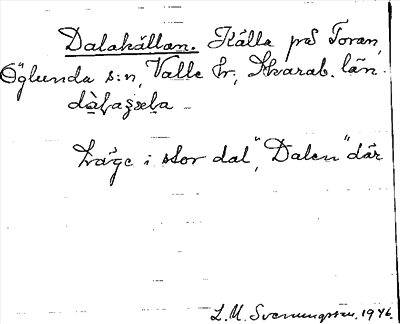 Dalakällan. Källa på Toran,
Öglunda s:n, Valle hr, Skarab. län.
Läge i stor dal, "Dalen" där
L. M. Svenungsson, 1946.